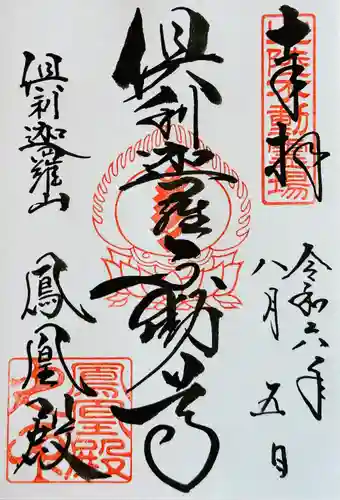 奉拝
北陸不動霊場
令和六年
八月五日
倶利迦羅不動尊
倶利迦羅山
鳳凰殿
鳳凰殿